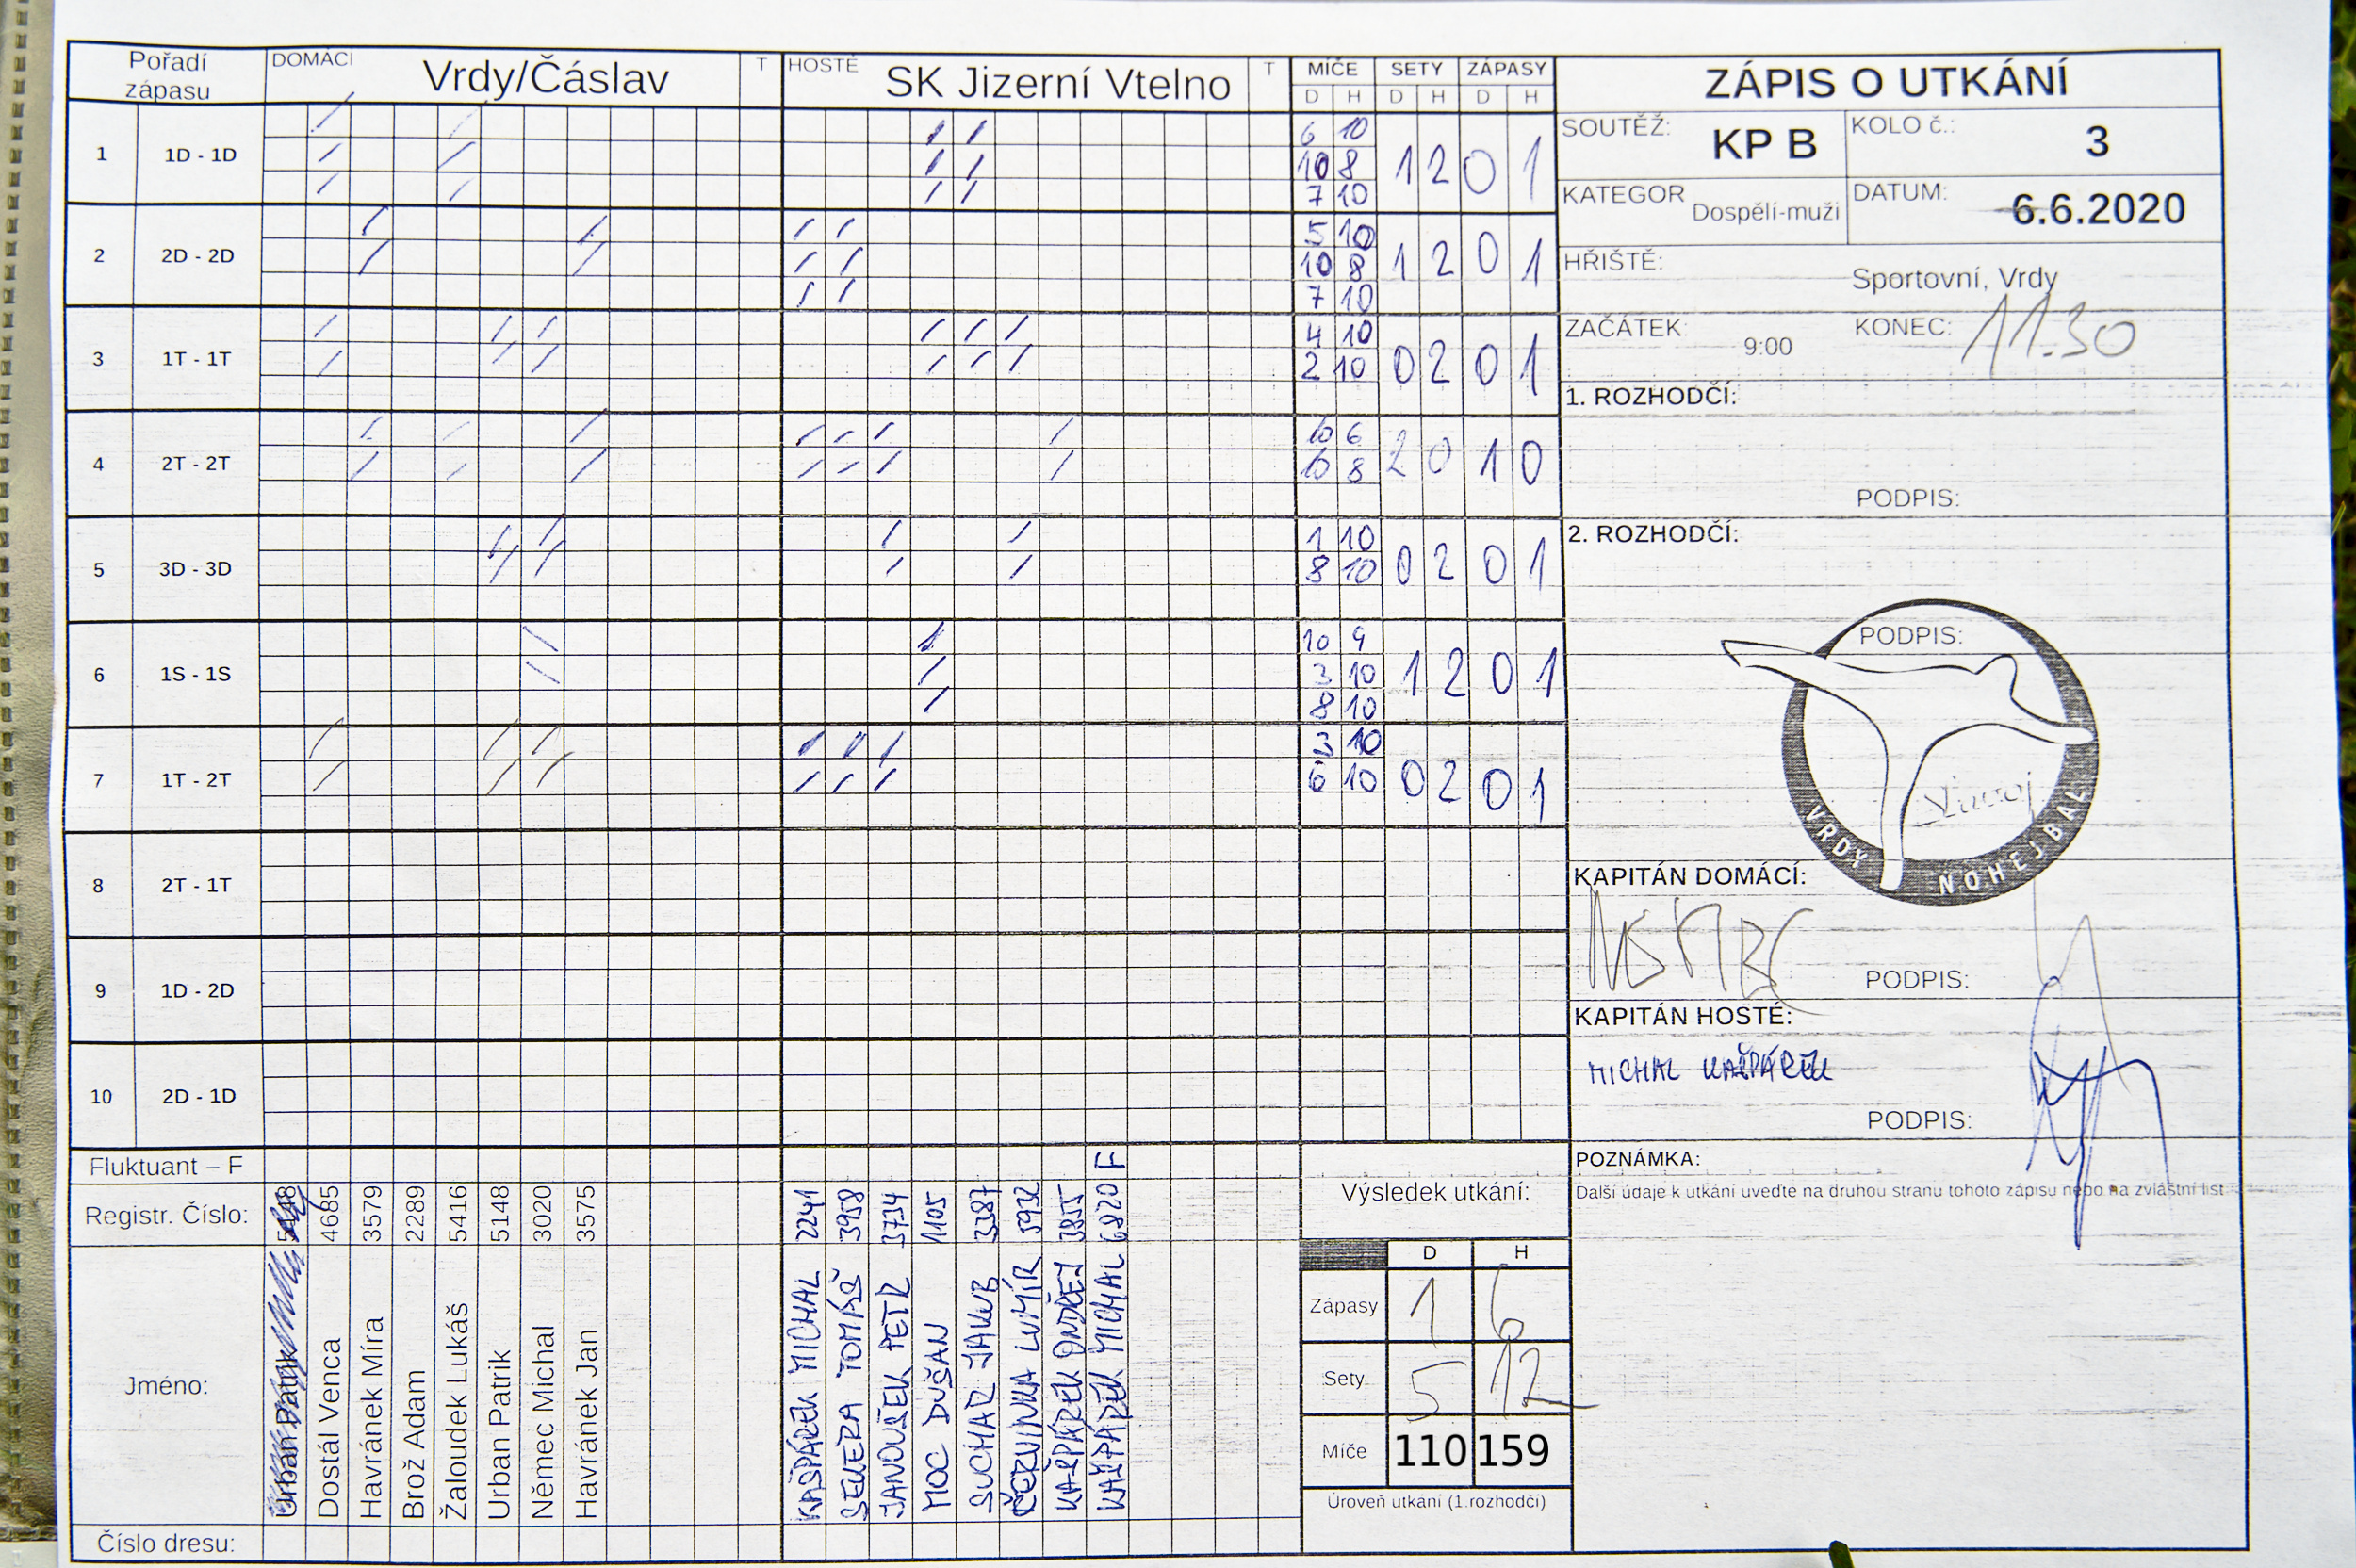 Pořadí zápasu DOMÁCÍ Vrdy/Čáslav T HOSTÉ SK Jizerní Vtelno T MÍČE SETY ZÁPASY
D H D H D H
1 1D - 1D 6 10 1 2 0 1
10 8
7 10
2 2D - 2D 5 10 1 2 0 1
10 8
7 10
3 1T - 1T 4 10 0 2 0 1
2 10
4 2T - 2T 10 6 2 0 1 0
10 8
5 3D - 3D 1 10 0 2 0 1
8 10
6 1S - 1S 10 9 1 2 0 1
3 10
8 10
7 1T - 2T 3 10 0 2 0 1
6 10
8 2T - 1T
9 1D - 2D
10 2D - 1D
Fluktuant – F F
Registr. Číslo: 4685 3579 2289 5416 5148 3020 3575 2241 3958 3734 1105 3387 5932 3855 6820
Jméno:
Dostál Venca
Havránek Míra
Brož Adam
Žaloudek Lukáš
Urban Patrik
Němec Michal
Havránek Jan
KAŠPÁREK MICHAL
TOMÁŠ
JANOUŠEK PETR
MOC DUŠAN
SUCHAR JAKUB
ČERVINKA LUMÍR
KAŠPÁREK ONDŘEJ
KAŠPÁREK MICHAL
Číslo dresu:
Výsledek utkání:
D H
Zápasy 1 6
Sety 5 12
Míče 110 159
Úroveň utkání (1.rozhodčí)
ZÁPIS O UTKÁNÍ
SOUTĚŽ: KP B KOLO č.: 3
KATEGOR Dospělí-muži DATUM: 6.6.2020
HŘIŠTĚ: Sportovní, Vrdy
ZAČÁTEK: 9:00 KONEC: 11.30
1. ROZHODČÍ:
PODPIS:
2. ROZHODČÍ:
PODPIS:
VRDY NOHEJBAL
KAPITÁN DOMÁCÍ:
NĚMEC
PODPIS:
KAPITÁN HOSTÉ:
MICHAL KAŠPÁREK
PODPIS:
POZNÁMKA:
Další údaje k utkání uveďte na druhou stranu tohoto zápisu nebo na zvláštní list